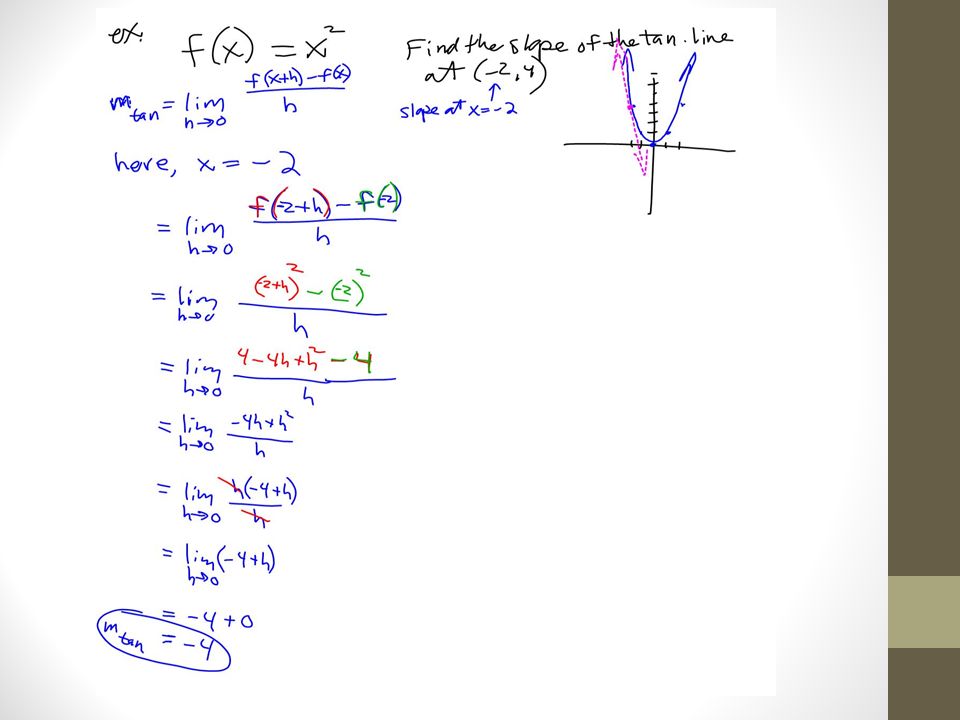 ex. f(x) = x²
Find the slope of the tan. line
at (-2, 4)
slope at x = -2
m_tan = lim_{h→0} (f(x+h) - f(x)) / h
here, x = -2
= lim_{h→0} (f(-2+h) - f(-2)) / h
= lim_{h→0} ((-2+h)² - (-2)²) / h
= lim_{h→0} (4 - 4h + h² - 4) / h
= lim_{h→0} (-4h + h²) / h
= lim_{h→0} h(-4+h) / h
= lim_{h→0} (-4+h)
= -4 + 0
m_tan = -4